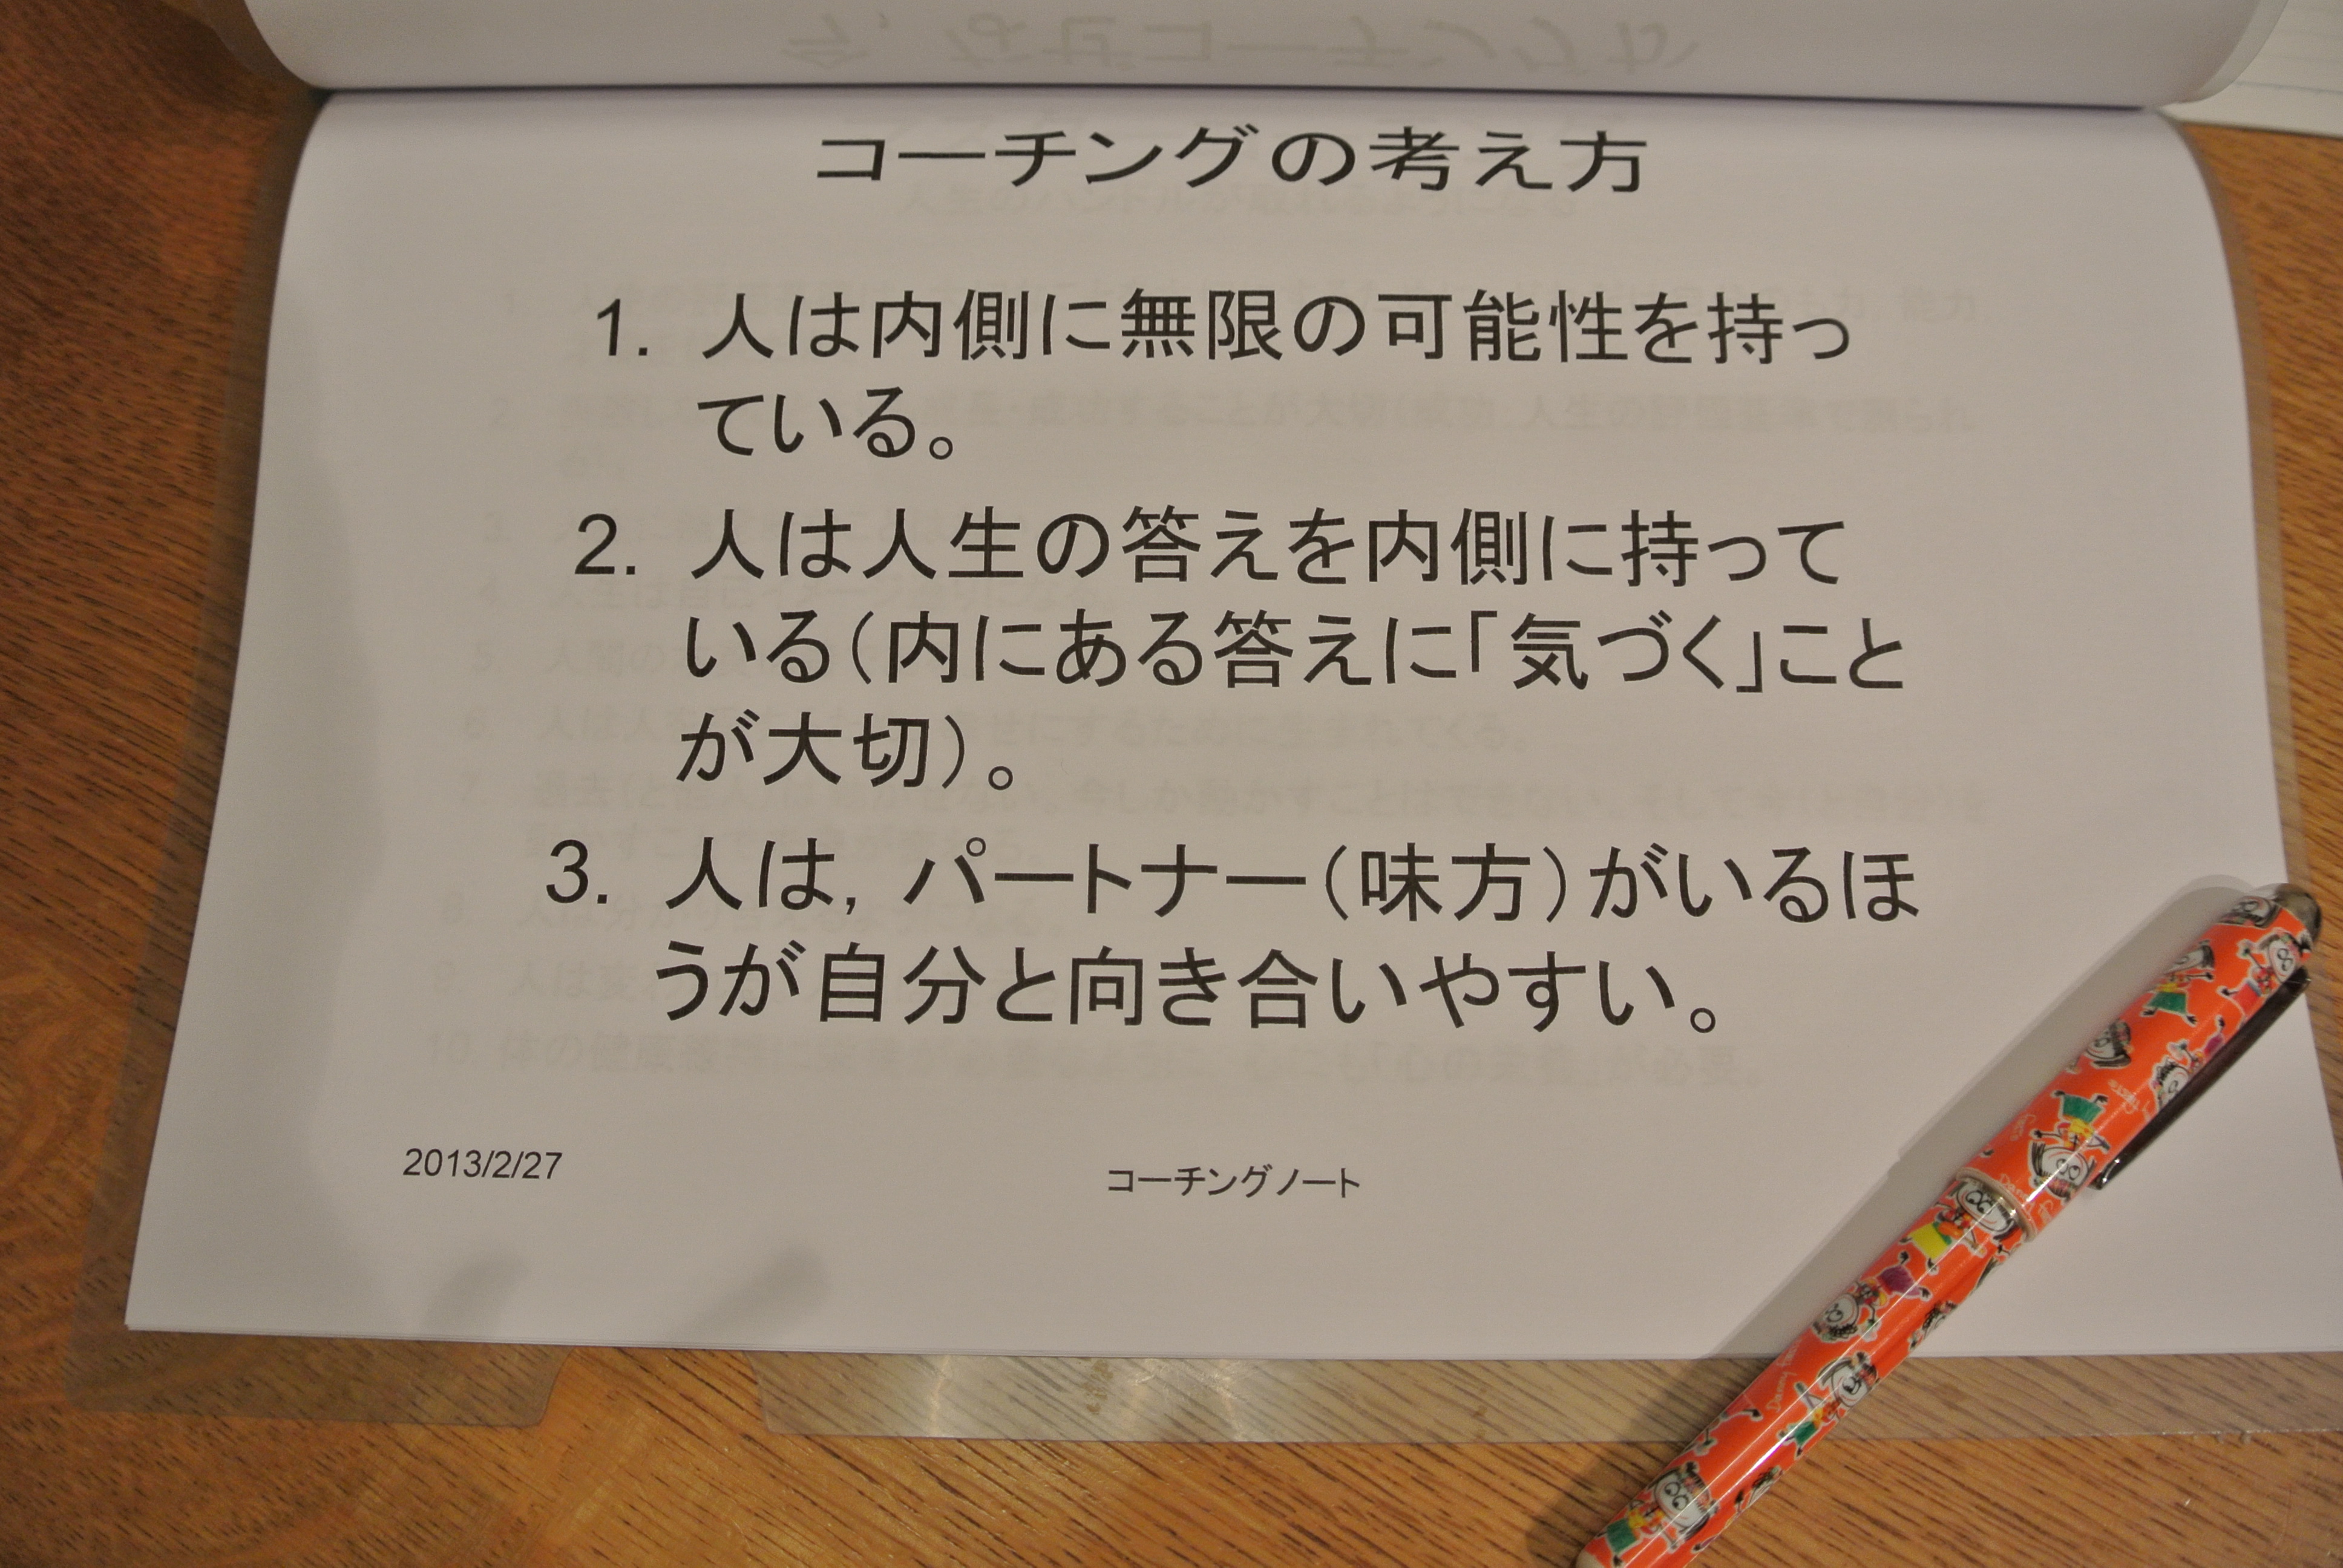 コーチングの考え方
1. 人は内側に無限の可能性を持っ
ている。
2. 人は人生の答えを内側に持って
いる(内にある答えに「気づく」こと
が大切)。
3. 人は, パートナー(味方)がいるほ
うが自分と向き合いやすい。
2013/2/27
コーチングノート